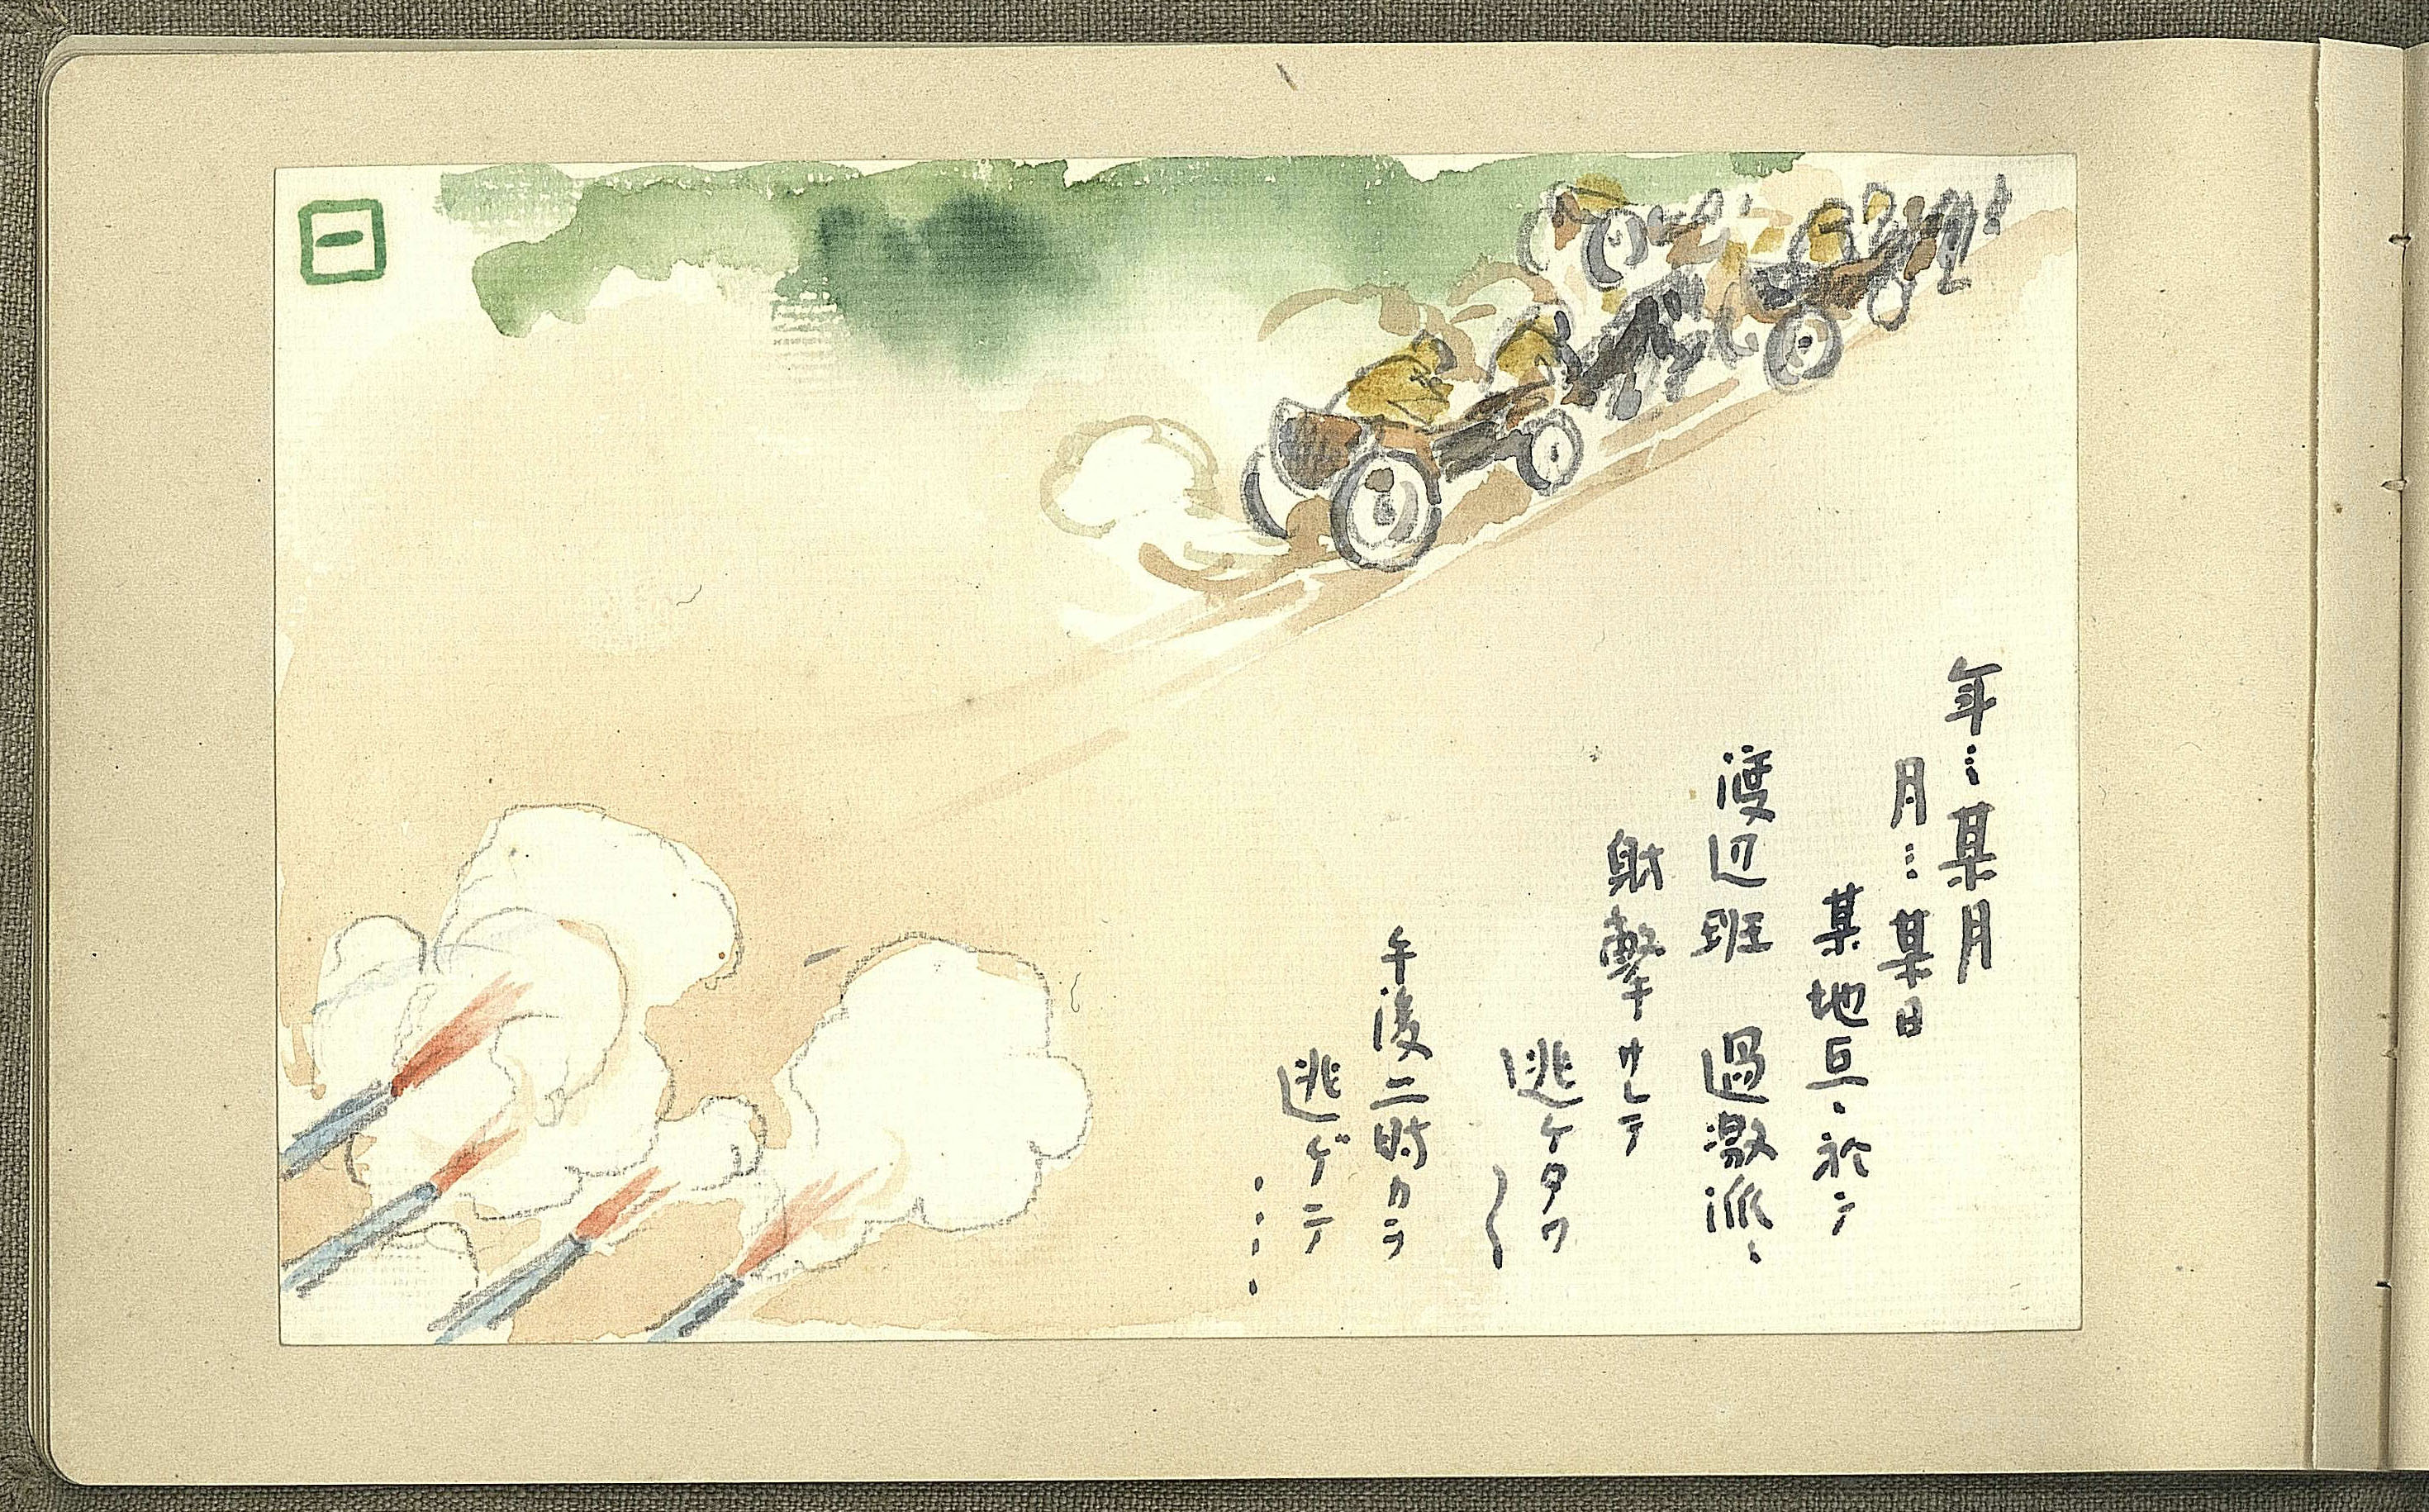 一
年…某月
月…某日
某地ニ於テ
渡辺班 過激派ニ
射撃サレテ
逃ケタワ〜
午後二時カラ
逃ゲテ
....